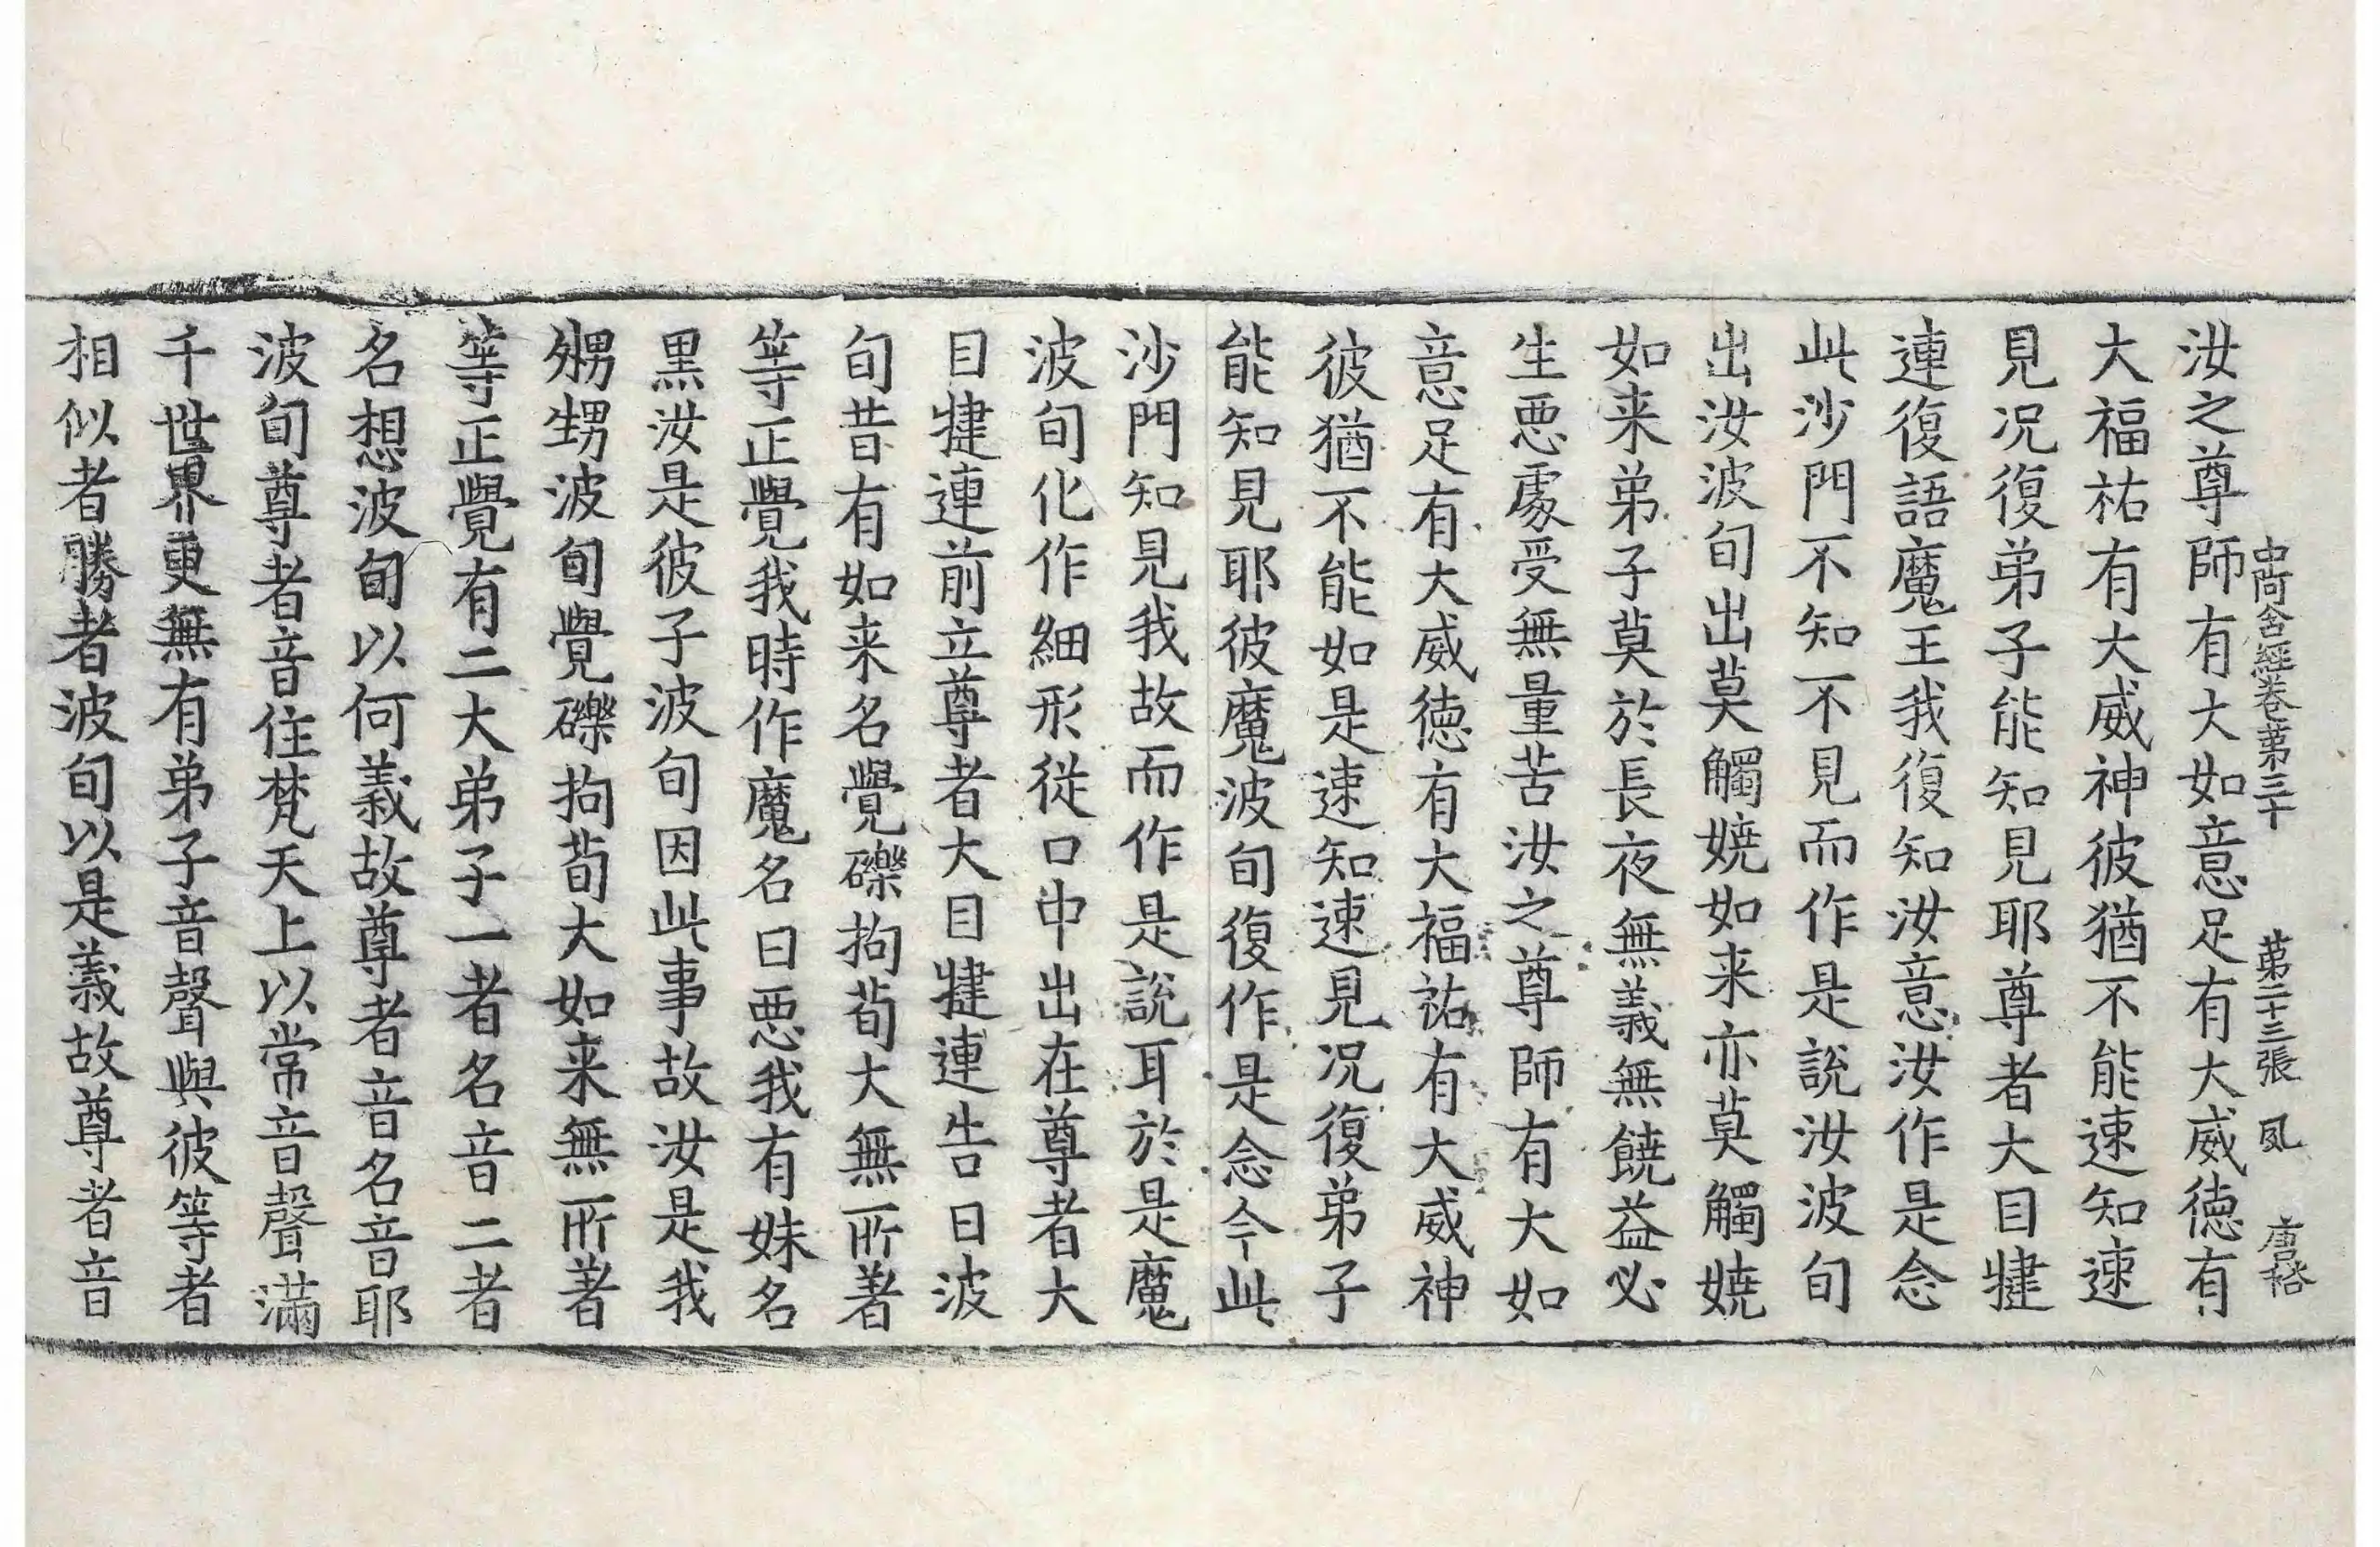 中阿含經卷第三十　第二十三張　夙　唐裕
汝之尊師有大如意足有大威徳有
大福祐有大威神彼猶不能速知速
見况復弟子能知見耶尊者大目揵
連復語魔王我復知汝意汝作是念
此沙門不知不見而作是說汝波旬
出汝波旬出莫觸嬈如来亦莫觸嬈
如来弟子莫於長夜無義無饒益必
生惡處受無量苦汝之尊師有大如
意足有大威徳有大福祐有大威神
彼猶不能如是速知速見况復弟子
能知見耶彼魔波旬復作是念今此
沙門知見我故而作是說耳於是魔
波旬化作細形從口中出在尊者大
目揵連前立尊者大目揵連告曰波
旬昔有如来名覺礫拘荀大無所著
等正覺我時作魔名曰惡我有妹名
黒汝是彼子波旬因此事故汝是我
甥甥波旬覺礫拘荀大如来無所著
等正覺有二大弟子一者名音二者
名想波旬以何義故尊者音名音耶
波旬尊者音住梵天上以常音聲滿
千世界更無有弟子音聲與彼等者
相似者勝者波旬以是義故尊者音